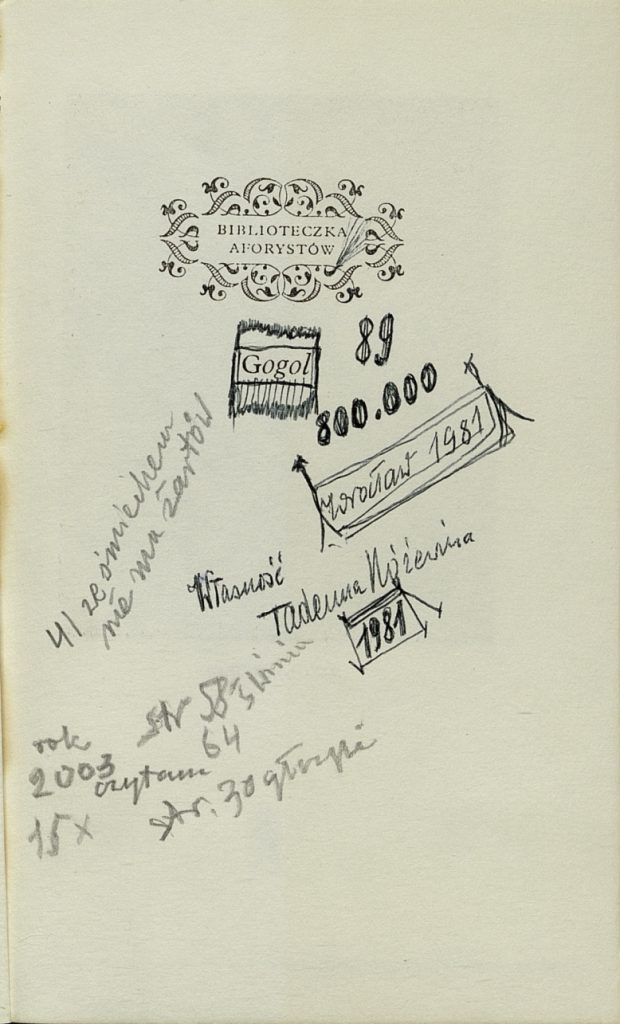 BIBLIOTECZKA
AFORYSTÓW
Gogol
89
800.000
Wrocław 1981
Własność
Tadeusza Różewicza
1981
41 ze śmiechem
nie ma żartów
str 58 świnia
64
rok
2003 czytam
15 x
str. 30